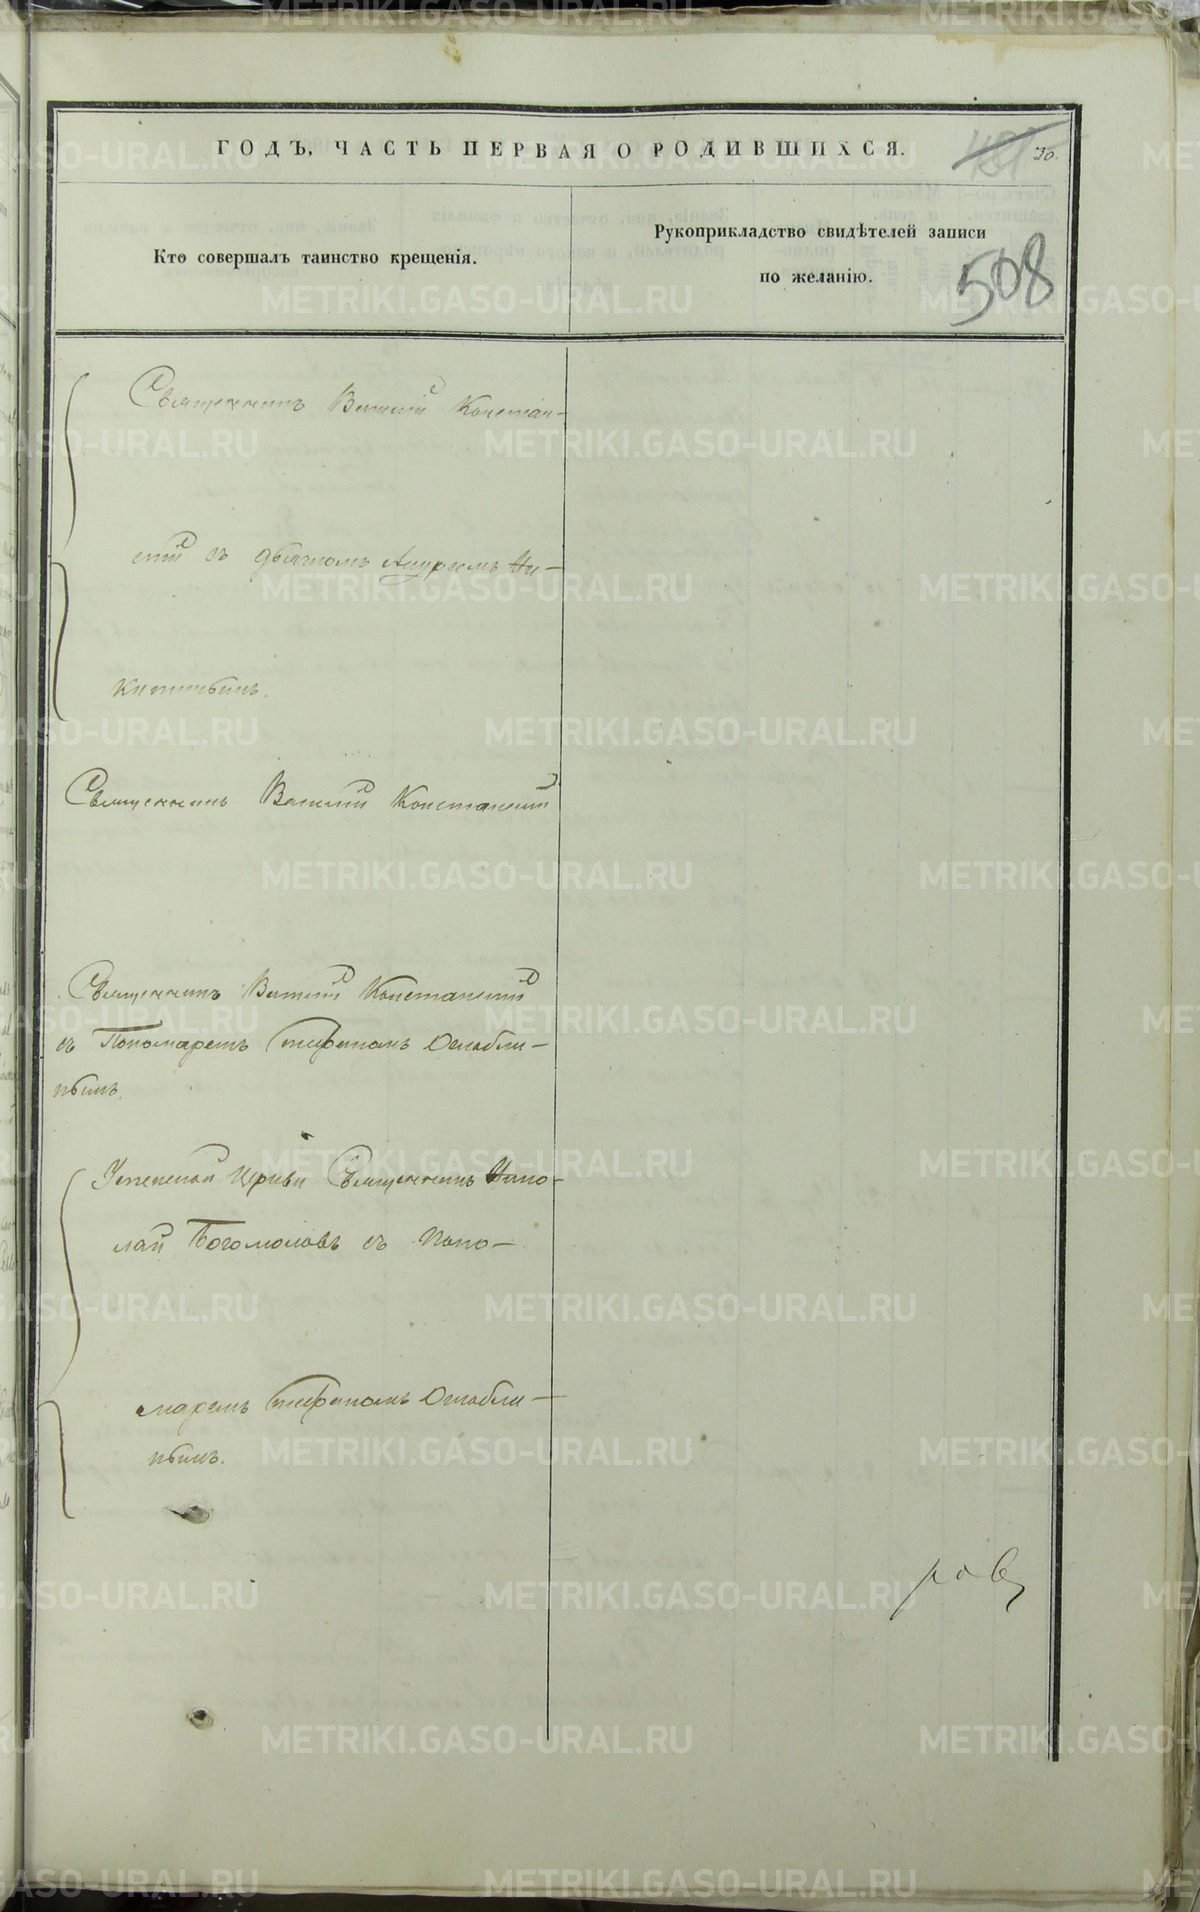 ГОДЪ, ЧАСТЬ ПЕРВАЯ О РОДИВШИХСЯ.
30.
Кто совершалъ таинство крещенія.
Рукоприкладство свидѣтелей записи
по желанію.
508
Священникъ Василій Констан-
скій съ Дьячкомъ Андреемъ Ни-
китинымъ.
Священникъ Василій Констанскій
Священникъ Василій Констанскій
съ Пономаремъ Стефаномъ Оглобли-
нымъ.
Успенской Церкви Священникъ Нико-
лай Богомоловъ съ Поно-
маремъ Стефаномъ Оглобли-
нымъ.
ровъ
METRIKI.GASO-URAL.RU